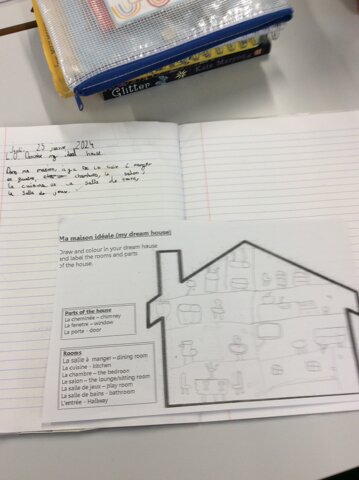 Glitter
Kate Maryon
25 2024
my house.
Dans ma maison, La salle à manger
chambres, salon
la cuisine La salle de bains,
la salle de jeux.
Ma maison idéale (my dream house)
Draw and colour in your dream house
and label the rooms and parts
of the house.
Parts of the house
La cheminée – chimney
La fenetre – window
La porte - door
Rooms
La salle à manger – dining room
La cuisine - kitchen
La chambre – the bedroom
Le salon – the lounge/sitting room
La salle de jeux – play room
La salle de bains - bathroom
L'entrée - Hallway